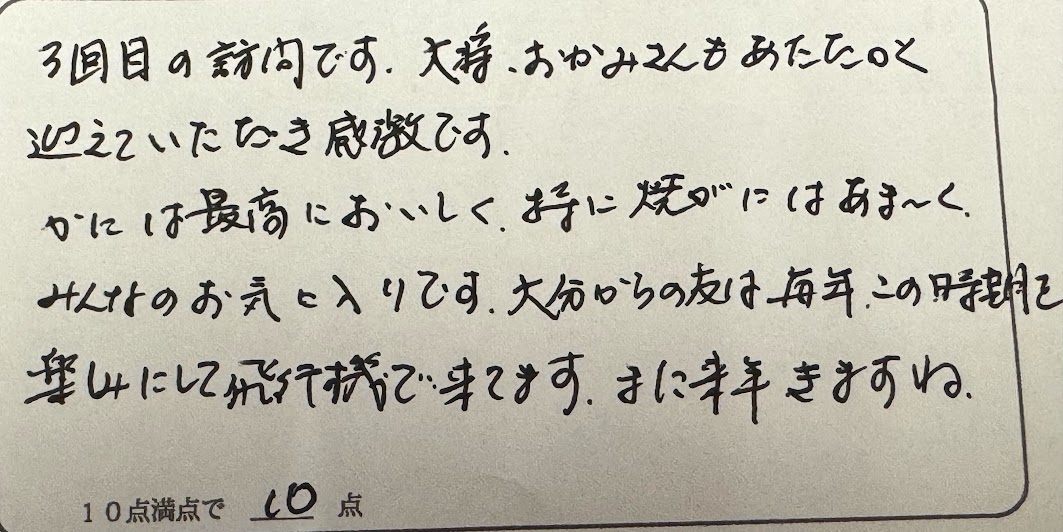 3回目の訪問です。大将、おかみさんもあたたかく
迎えていただき感激です。
かには最高においしく、特に焼がにはあま〜く、
みんなのお気に入りです。大分からの友は毎年、この時期を
楽しみにして飛行機で来てます。また来年きますね。
10点満点で 10 点